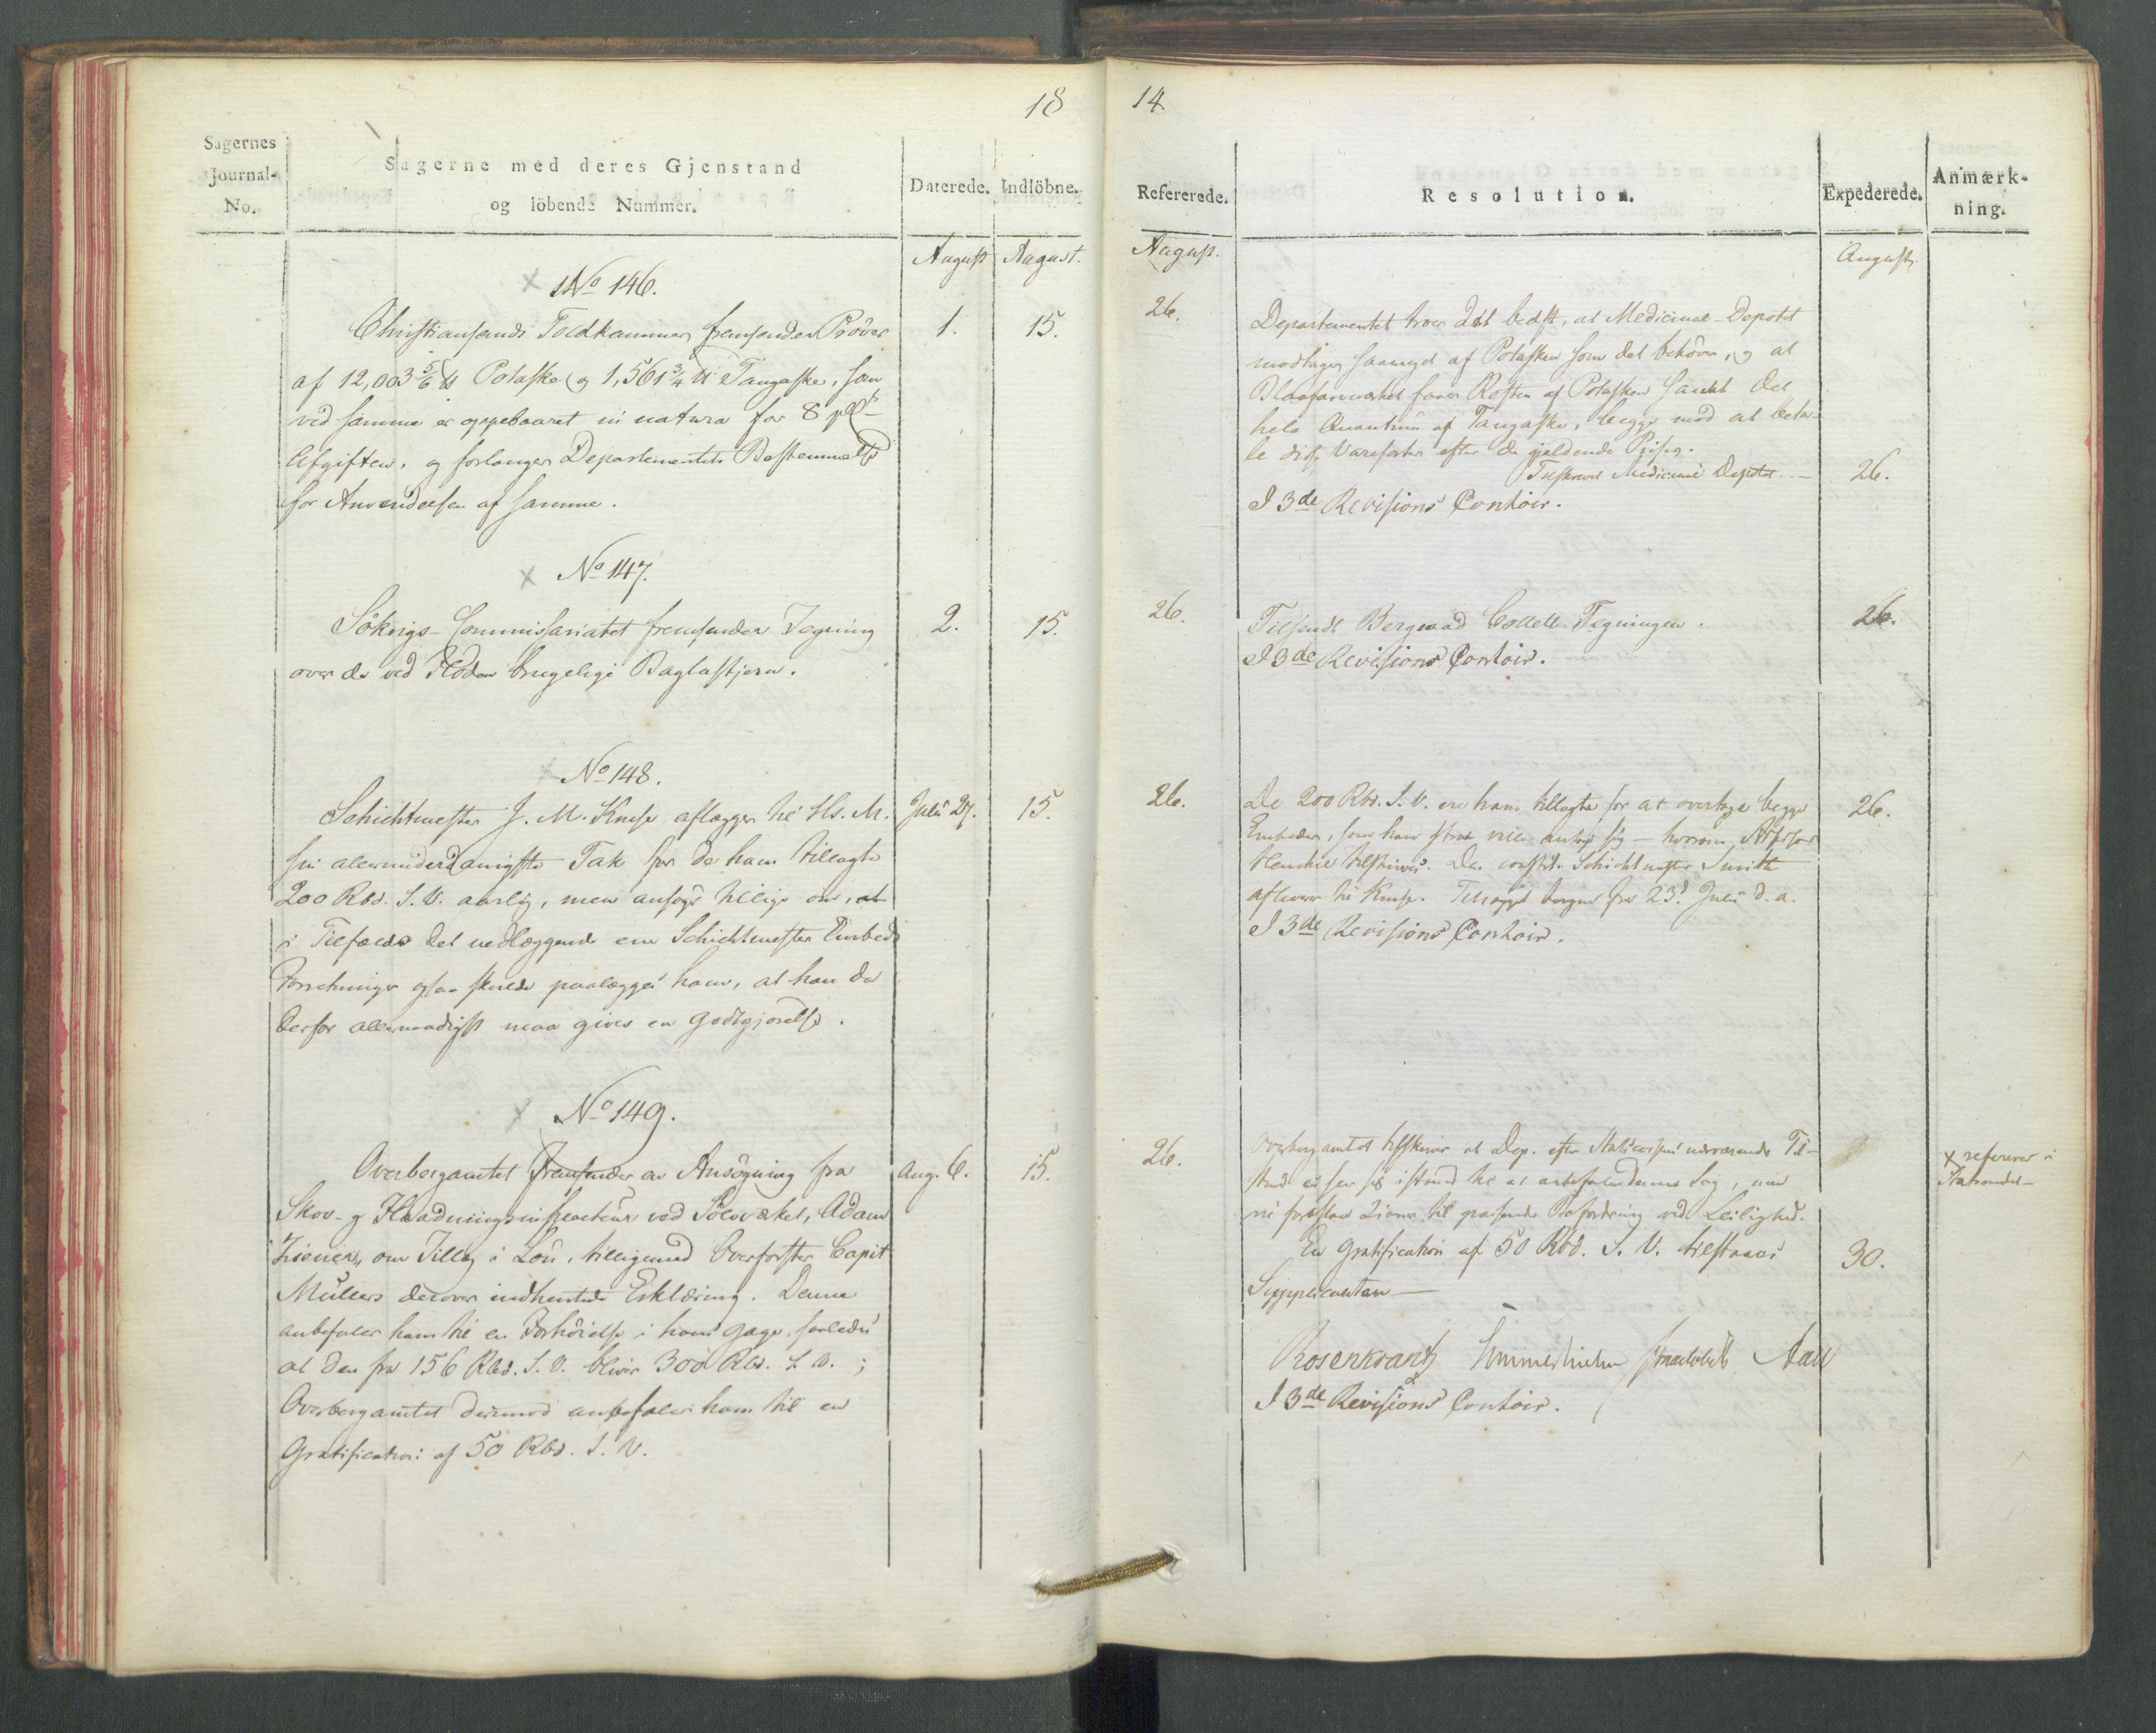 18
Sagernes
Journal-
No.
Sagerne med deres Gjenstand
og löbende Nummer.
Daterede.
Indlöbne.
August
August.
No 146.
Christiansands Toldkammer fremsender Prøver
1.
15.
af 12,003 5/6 ℔ Potaske og 1,561 3/4 ℔ Tangaske, som
ved samme er oppebaaret in natura for 8 pCt
Afgiften, og forlanger Departementets Bestemmelse
for Anvendelsen af samme.
No 147.
Sökrigs-Commissariatet fremsender Tegning
2.
15.
over de ved Floden brugelige Baglastjern.
No 148.
Schichtmester J. M. Kruse aflægger til Hs. M.
Julii 27.
15.
sin allerunderdanigste Tak for de ham tillagte
200 Rbd. S. V. aarlig, men ansøger tillige om, at
i Tilfælde det vedlæggende em Schichtmester Embeds
Forretninger ogsaa skulde paalægges ham, at han da
derfor allernaadigst maa gives en Godtgjørelse.
No 149.
Overbergamtet fremsender en Ansögning fra
Aug. 6.
15.
Skov- og Flaadningsinspecteur ved Sölvværket, Adam
Ziener, om Tillæg i Lön, tilligemed Overforster Capit
Müllers derover indhentede Erklæring. Denne
anbefaler ham til en Forhöielse i hans Gage, saaledes
at den fra 156 Rbd. S. V. bliver 300 Rbd. S. V.;
Overbergamtet derimod anbefaler ham til en
Gratification af 50 Rbd. S. V.
14.
Refererede.
Resolution.
Expederede.
Anmærk-
ning.
August.
August.
26.
Departementet troer det bedst, at Medicinal-Depotet
modtager saameget af Potasken som det behöver, og at
Blaafarveværket faaer Resten af Potasken samt det
hele Quantum af Tangaske, begge mod at beta-
le disse Varesorter efter de gjeldende Priser.
Tilskrevet Medicinal Depotet
26.
I 3de Revisions Contoir.
26.
Tilsendt Bergraad Collett Tegningen.
26.
I 3de Revisions Contoir.
26.
De 200 Rbd. S. V. ere ham tillagte for at overtage begge
26.
Embeder, som han strax vil antage sig – hvorom Assessor
Henckel tilskrives. Den constit. Schichtmester Smith
afleverer til Kruse. Tillægget beregnes fra 23d Julii d. a.
I 3de Revisions Contoir.
26.
Overbergamtet tilskrives at Dep. efter nærværende Til-
stand ei seer sig istand til at anbefale denne Sag, men
vil foreslaae Ziener til passende Befordring ved Leilighed.
x refereres i
Statsraadet –
En Gratification af 50 Rbd. S. V. tilstaaes
30.
Supplicanten –
Rosenkrantz Hummerhielm Aall
I 3de Revisions Contoir.